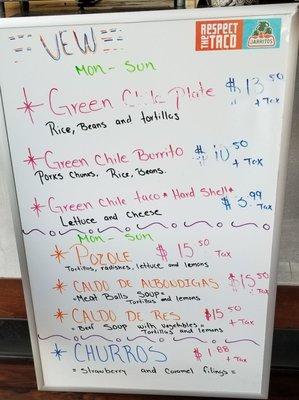 NEW
RESPECT
THE TACO
JARRITOS
Mon - Sun
* Green Chile Plate $13.50 + Tax
Rice, Beans and tortillas
* Green Chile Borrito $10.50 + Tax
Porks Chunks, Rice, Beans.
* Green Chile taco * Hard Shell * $3.99 + Tax
Lettuce and Cheese
Mon - Sun
* POZOLE $15.50 Tax
Tortillas, radishes, lettuce and lemons
* CALDO DE ALBONDIGAS $15.50 + Tax
= Meat Balls Soup =
Tortillas and lemons
* CALDO DE RES $15.50 + Tax
= Beef Soup with vegetables =
Tortillas and lemons
* CHURROS $1.88 + Tax
= Strawberry and Caramel filings =